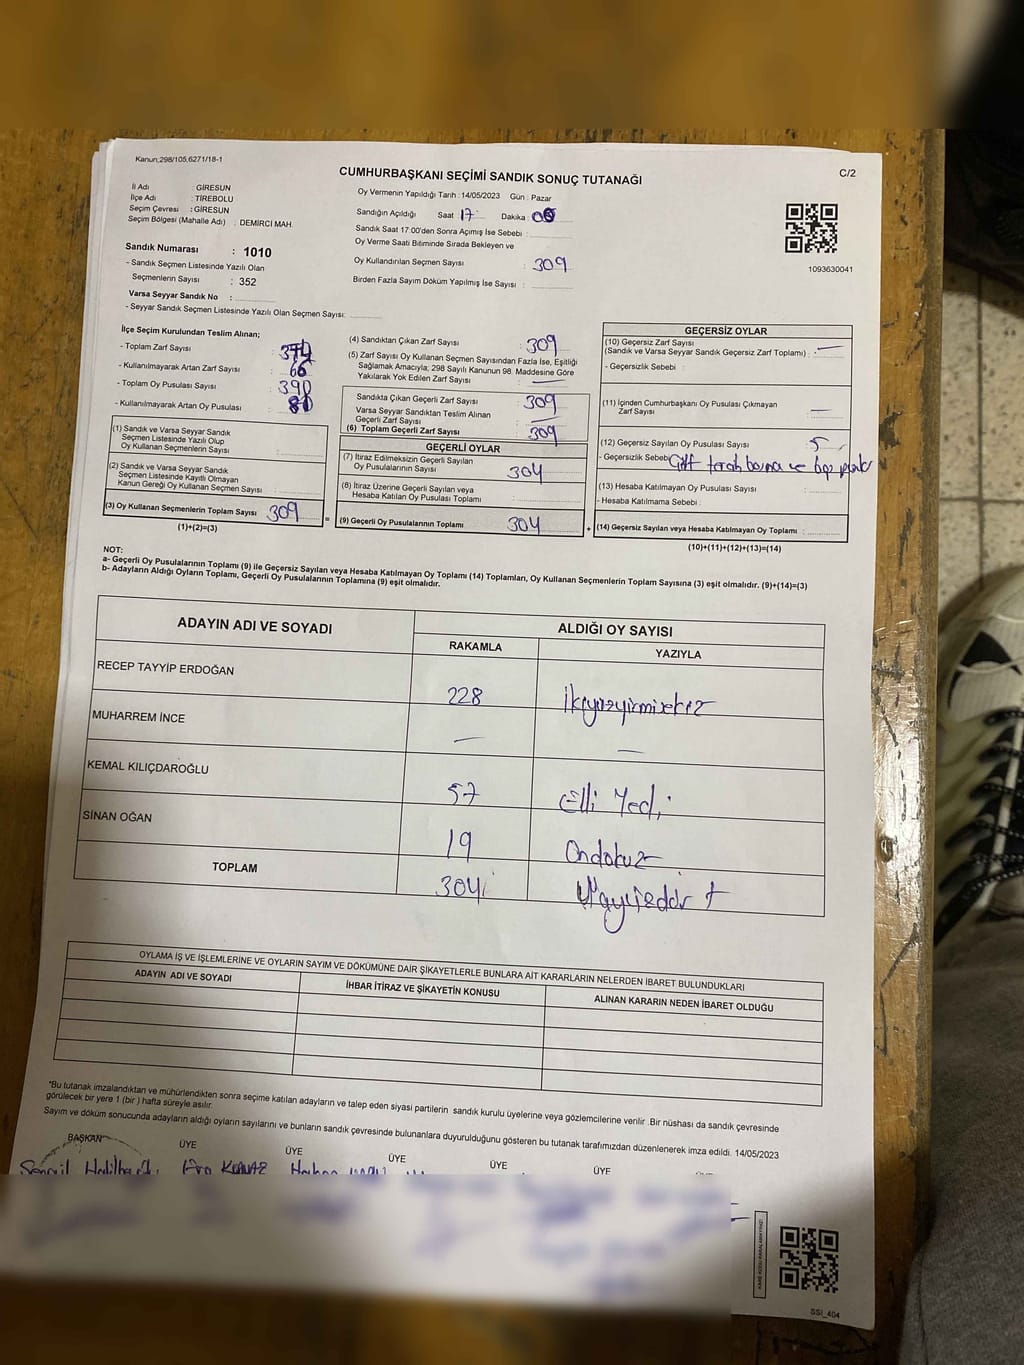 Kanun;298/105,6271/18-1
CUMHURBAŞKANI SEÇİMİ SANDIK SONUÇ TUTANAĞI
C/2
İl Adı : GİRESUN
İlçe Adı : TİREBOLU
Seçim Çevresi : GİRESUN
Seçim Bölgesi (Mahalle Adı) : DEMİRCİ MAH.
Sandık Numarası : 1010
- Sandık Seçmen Listesinde Yazılı Olan
Seçmenlerin Sayısı : 352
Varsa Seyyar Sandık No :
- Seyyar Sandık Seçmen Listesinde Yazılı Olan Seçmen Sayısı:
Oy Vermenin Yapıldığı Tarih : 14/05/2023 Gün : Pazar
Sandığın Açıldığı Saat 17 Dakika :
Sandık Saat 17.00'den Sonra Açılmış İse Sebebi :
Oy Verme Saati Bitiminde Sırada Bekleyen ve
Oy Kullandırılan Seçmen Sayısı : 309
Birden Fazla Sayım Döküm Yapılmış İse Sayısı :
1093630041
İlçe Seçim Kurulundan Teslim Alınan;
- Toplam Zarf Sayısı :
- Kullanılmayarak Artan Zarf Sayısı : 66
- Toplam Oy Pusulası Sayısı :
- Kullanılmayarak Artan Oy Pusulası :
(1) Sandık ve Varsa Seyyar Sandık
Seçmen Listesinde Yazılı Olup
Oy Kullanan Seçmenlerin Sayısı :
(2) Sandık ve Varsa Seyyar Sandık
Seçmen Listesinde Kayıtlı Olmayan
Kanun Gereği Oy Kullanan Seçmen Sayısı :
(3) Oy Kullanan Seçmenlerin Toplam Sayısı : 309
(1)+(2)=(3)
=
(4) Sandıktan Çıkan Zarf Sayısı : 309
(5) Zarf Sayısı Oy Kullanan Seçmen Sayısından Fazla İse, Eşitliği
Sağlamak Amacıyla; 298 Sayılı Kanunun 98. Maddesine Göre
Yakılarak Yok Edilen Zarf Sayısı : —
Sandıkta Çıkan Geçerli Zarf Sayısı : 309
Varsa Seyyar Sandıktan Teslim Alınan
Geçerli Zarf Sayısı : —
(6) Toplam Geçerli Zarf Sayısı : 309
GEÇERLİ OYLAR
(7) İtiraz Edilmeksizin Geçerli Sayılan
Oy Pusulalarının Sayısı : 304
(8) İtiraz Üzerine Geçerli Sayılan veya
Hesaba Katılan Oy Pusulası Toplamı :
(9) Geçerli Oy Pusulalarının Toplamı : 304
+
GEÇERSİZ OYLAR
(10) Geçersiz Zarf Sayısı
(Sandık ve Varsa Seyyar Sandık Geçersiz Zarf Toplamı) : —
- Geçersizlik Sebebi :
(11) İçinden Cumhurbaşkanı Oy Pusulası Çıkmayan
Zarf Sayısı : —
(12) Geçersiz Sayılan Oy Pusulası Sayısı : 5
- Geçersizlik Sebebi : Çift tarafı basma ve
(13) Hesaba Katılmayan Oy Pusulası Sayısı :
- Hesaba Katılmama Sebebi :
(14) Geçersiz Sayılan veya Hesaba Katılmayan Oy Toplamı :
(10)+(11)+(12)+(13)=(14)
NOT:
a- Geçerli Oy Pusulalarının Toplamı (9) ile Geçersiz Sayılan veya Hesaba Katılmayan Oy Toplamı (14) Toplamları, Oy Kullanan Seçmenlerin Toplam Sayısına (3) eşit olmalıdır. (9)+(14)=(3)
b- Adayların Aldığı Oyların Toplamı, Geçerli Oy Pusulalarının Toplamına (9) eşit olmalıdır.
ADAYIN ADI VE SOYADI
ALDIĞI OY SAYISI
RAKAMLA YAZIYLA
RECEP TAYYİP ERDOĞAN 228 ikiyüzyirmisekiz
MUHARREM İNCE — —
KEMAL KILIÇDAROĞLU 57 Elli Yedi
SİNAN OĞAN 19 Ondokuz
TOPLAM 304 Üçyüzdört
OYLAMA İŞ VE İŞLEMLERİNE VE OYLARIN SAYIM VE DÖKÜMÜNE DAİR ŞİKAYETLERLE BUNLARA AİT KARARLARIN NELERDEN İBARET BULUNDUKLARI
ADAYIN ADI VE SOYADI İHBAR İTİRAZ VE ŞİKAYETİN KONUSU ALINAN KARARIN NEDEN İBARET OLDUĞU
*Bu tutanak imzalandıktan ve mühürlendikten sonra seçime katılan adayların ve talep eden siyasi partilerin sandık kurulu üyelerine veya gözlemcilerine verilir .Bir nüshası da sandık çevresinde
görülecek bir yere 1 (bir ) hafta süreyle asılır.
Sayım ve döküm sonucunda adayların aldığı oyların sayılarını ve bunların sandık çevresinde bulunanlara duyurulduğunu gösteren bu tutanak tarafımızdan düzenlenerek imza edildi. 14/05/2023
BAŞKAN ÜYE ÜYE ÜYE ÜYE ÜYE
SSI_404